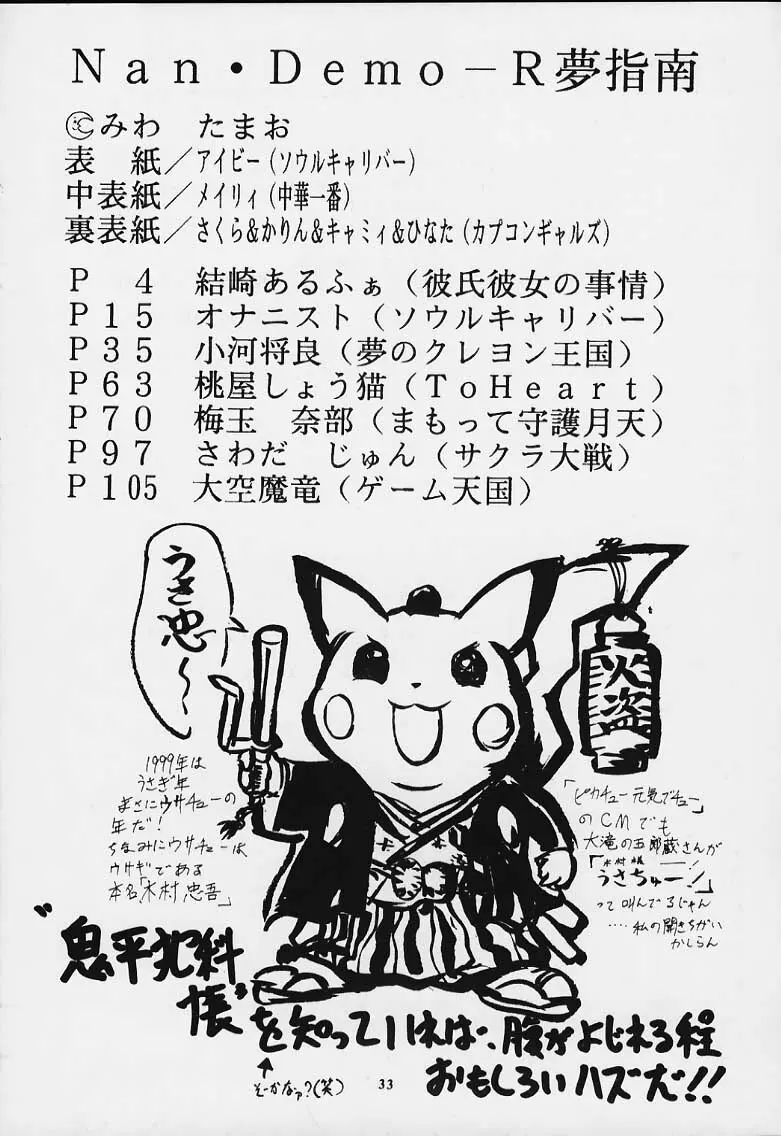 Nan・Demo－R夢指南
©みわ　たまお
表　紙／アイビー（ソウルキャリバー）
中表紙／メイリィ（中華一番）
裏表紙／さくら&かりん&キャミィ&ひなた（カプコンギャルズ）
P　4　結崎あるふぁ（彼氏彼女の事情）
P15　オナニスト（ソウルキャリバー）
P35　小河将良（夢のクレヨン王国）
P63　桃屋しょう猫（ToHeart）
P70　梅玉　奈部（まもって守護月天）
P97　さわだ　じゅん（サクラ大戦）
P105　大空魔竜（ゲーム天国）
うさ忠〜〜
火盗
1999年は
うさぎ年
まさにウサチューの
年だ！
ちなみにウサチューは
ウサギである
本名「木村忠吾」
「ピカチュー元気でチュー」
のCMでも
大滝の五郎蔵さんが
「うさちゅー！」
って叫んでるじゃん
‥‥私の聞きちがい
かしらん
"鬼平犯科
帳"を知っていれば、腹がよじれる程
おもしろいハズだ!!
↑
そーかなァ?(笑)
33